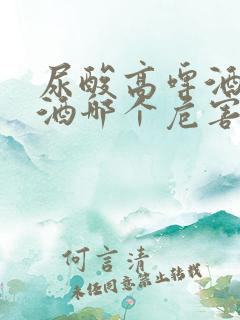 尿酸高啤酒
酒那个危害
何言清
未经同意禁止转载